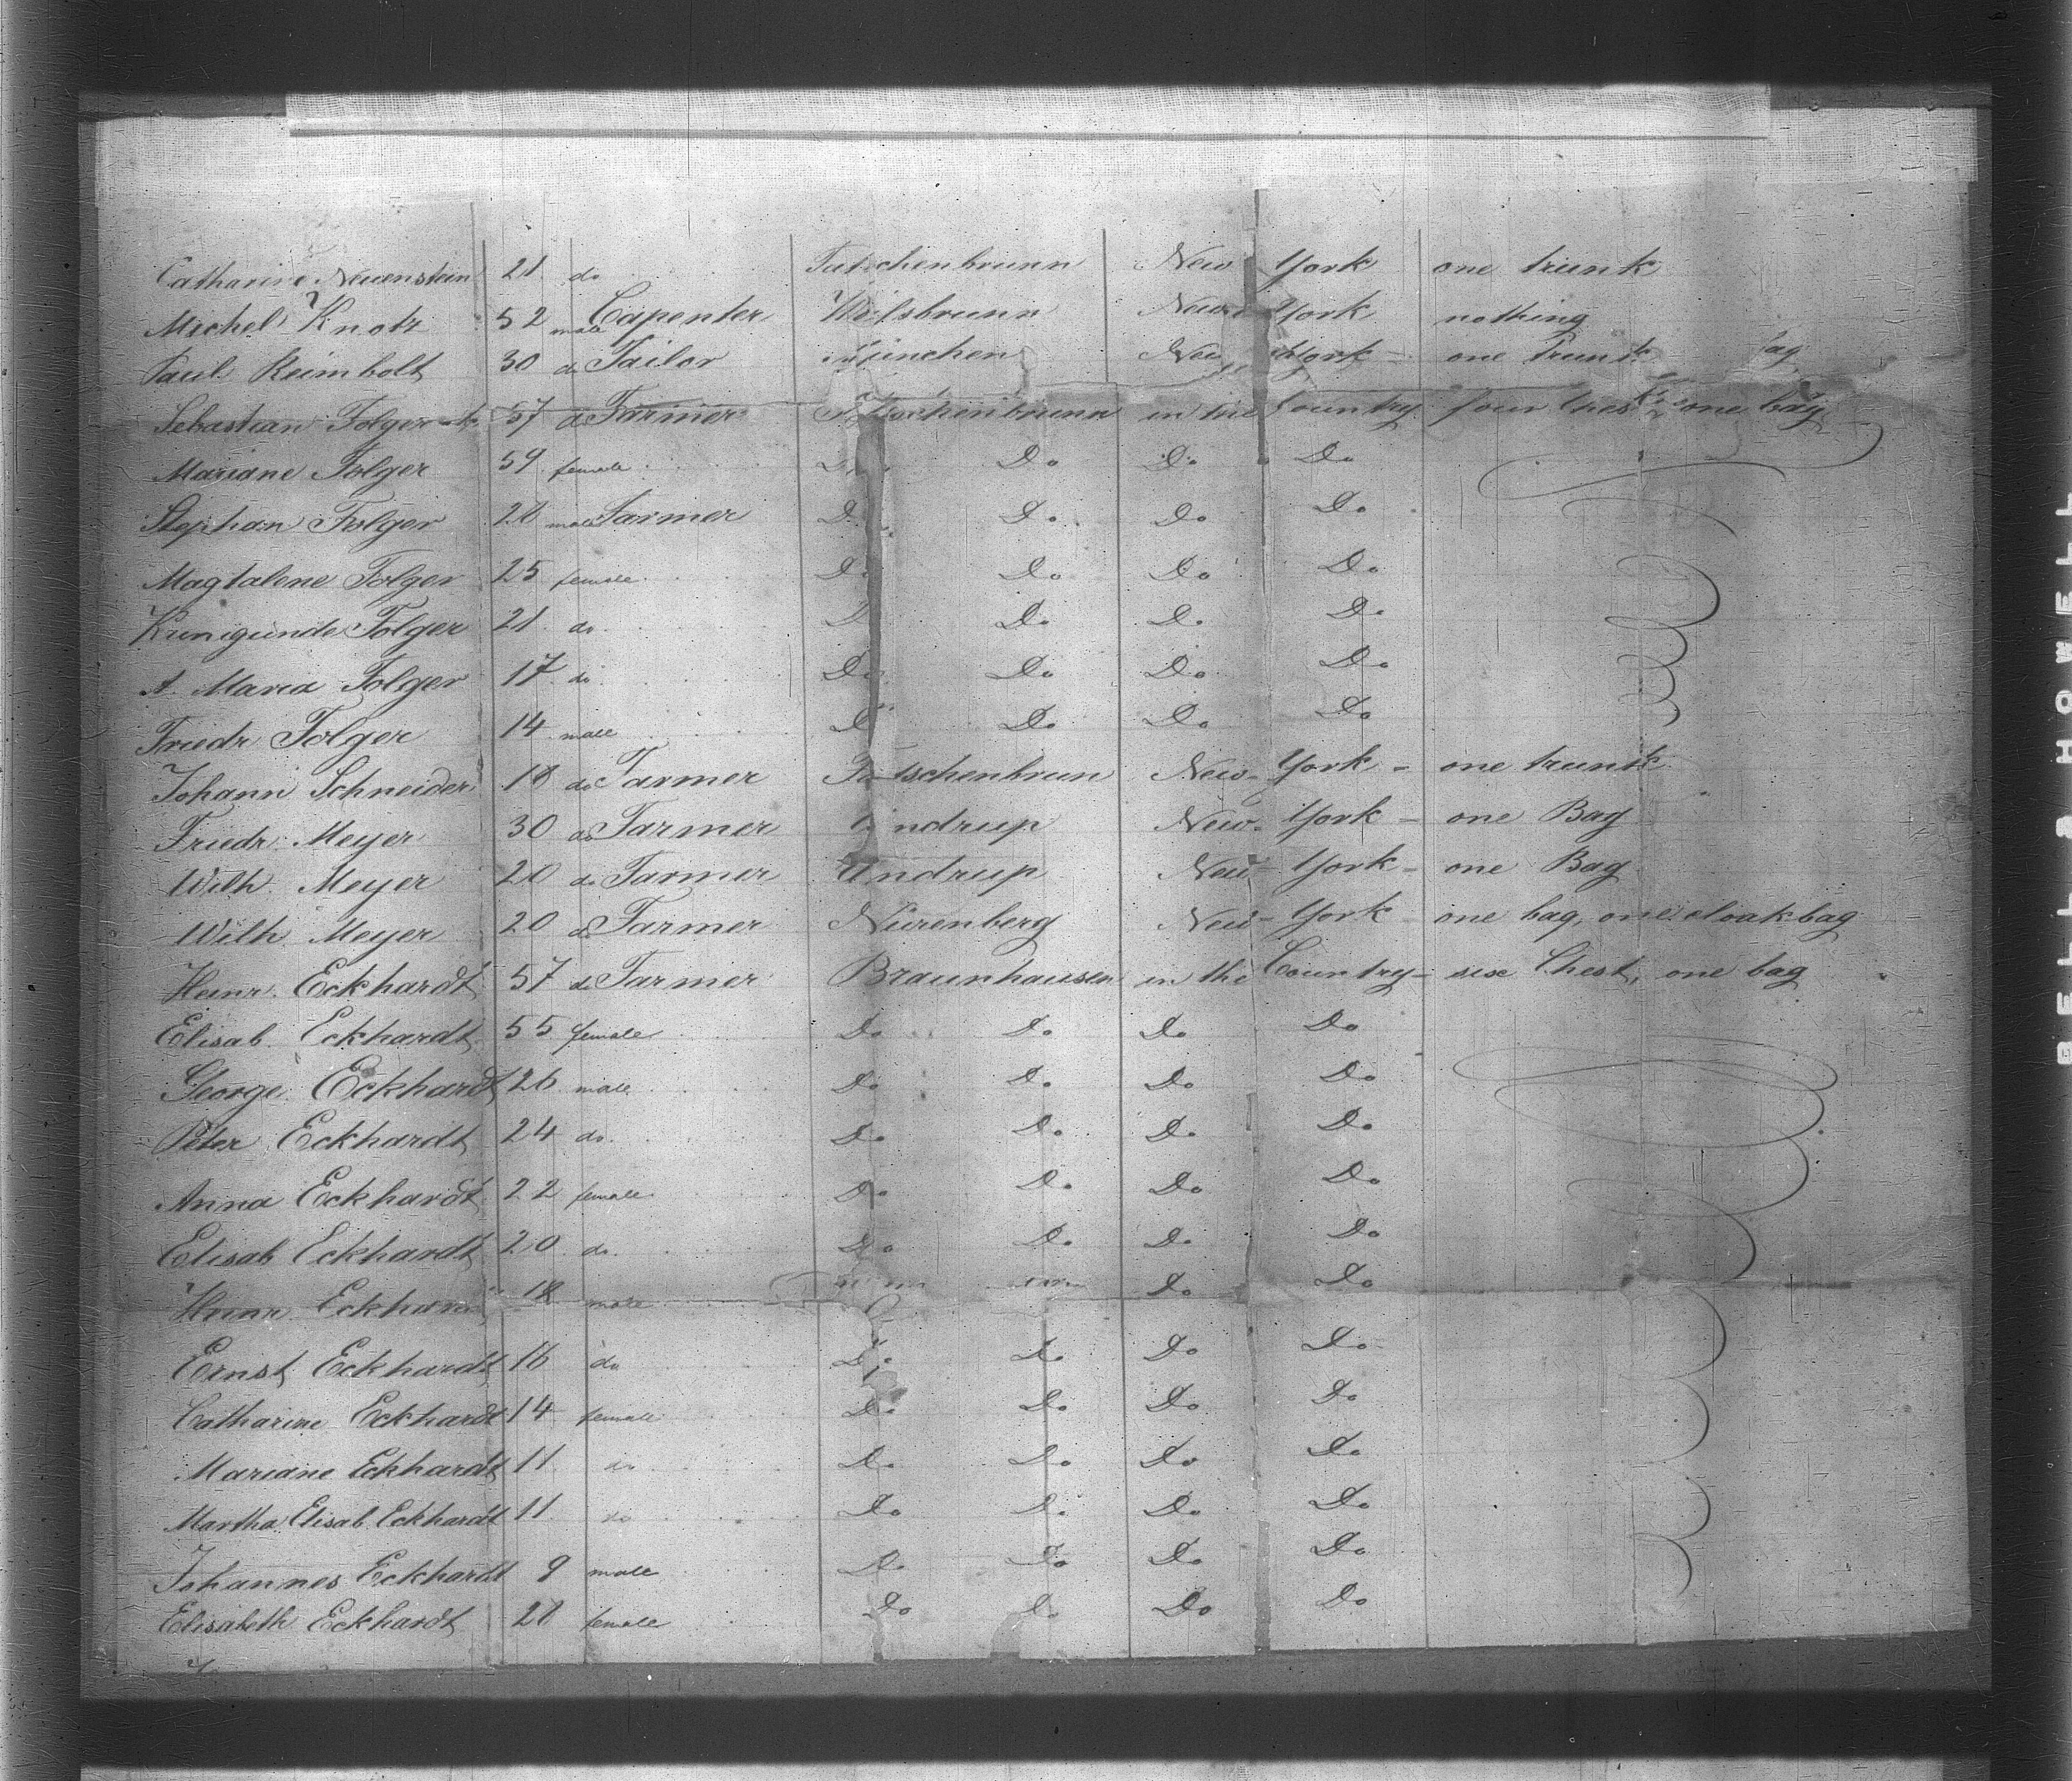 Catharine Neuenstein 21 do Tutschenbrunn New York one trunk
Michel Knotz 52 male Capenter Wilsbrunn New York nothing
Paul Reimbolt 30 do Tailor München New York - one Trunk bag
Sebastian Folger 57 do Farmer in the Country four Chest one bag
Mariane Folger 59 female Do Do Do Do
Stephan Folger 28 male Farmer Do Do Do Do
Magtalene Folger 25 female Do Do Do Do
Kunigunde Folger 21 do Do Do Do Do
A. Maria Folger 17 do Do Do Do Do
Friedr Folger 14 male Do Do Do Do
Johann Schneider 18 do Farmer Tutschenbrun New-York - one trunk
Friedr. Meyer 30 do Farmer Undrup New-York - one Bag
Wilh. Meyer 20 do Farmer Undrup New-York - one Bag
Wilh. Meyer 20 do Farmer Nürenberg New-York one bag, one cloakbag
Heinr. Eckhardt 57 do Farmer Braunhausen in the Country - six Chest, one bag
Elisab. Eckhardt 55 female Do Do Do Do
George Eckhardt 26 male Do Do Do Do
Peter Eckhardt 24 do. Do Do Do Do
Anna Eckhardt 22 female Do Do Do Do
Elisab Eckhardt 20 do. Do Do Do Do
Heinr. Eckhardt 18 male Do Do
Ernst Eckhardt 16 do Do Do Do Do
Catharine Eckhardt 14 female Do Do Do Do
Mariane Eckhardt 11 do Do Do Do Do
Martha Elisab Eckhardt 11 do Do Do Do Do
Johannes Eckhardt 9 male Do Do Do Do
Elisabeth Eckhardt 21 female Do Do Do Do
BELL & HOWELL